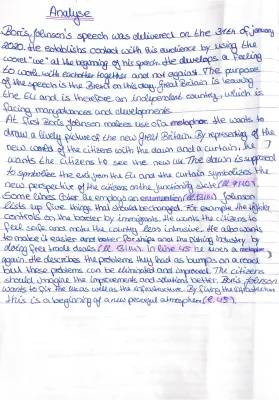 Analyse
Boris Johnson's speech was delivered on the 31st of January
2020. He establishes contact with his audience by using the
word "we" at the beginning of his speech. He develops a feeling
to work with eachother together and not against. The purpose
of the speech is the Brexit on this day, Great Britain is leaving
the EU and is therefore an independent country, which is
facing new chances and developments.
At first Boris Johnson makes use of a metaphor. He wants to
draw a lively picture of the new Great Britain. By representing of the
new world of the citizens with the dawn and a curtain, he
wants the citizens to see the new UK. The dawn is supposed
to symbolize the exit from the EU and the curtain symbolizes the
new perspective of the citizens on the
Some lines later he employs an enumeration. Johnson
lists up five things that should be changed. For example, the
controls on the border by immigrants. He wants the citizens to
feel safe and make the country less intrusive. He also wants
to make it easier and better for ships and the fishing industry by
doing free trade deals. In line 45 he uses a metaphor
again. He describes the problems they had as bumps on a road
but those problems can be eliminated and improved. The citizens
should imagine the improvements and solutions better. Boris Johnson
wants to fix the as well as the infrastructure. By fixing the infrastructure
this is a beginning of a new peaceful atmosphere (l. 45)